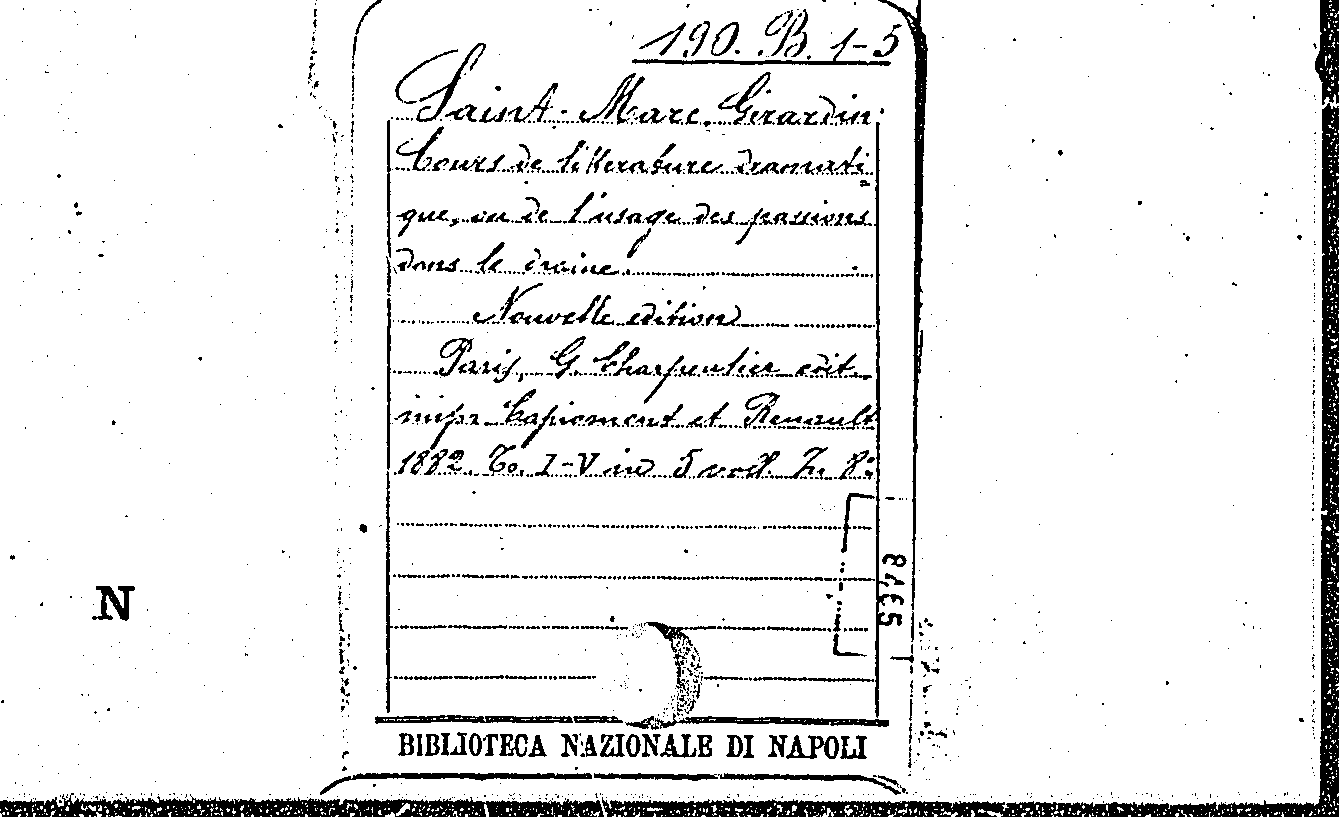 190. B. 1-5
Saint-Marc Girardin:
Cours de litterature dramati
que, ou de l'usage des passions
dans le drame.
Nouvelle edition
Paris, G. Charpentier edit.
impr. Capiomont et Renault
1882. To. I-V in 5 voll. In 8:
N
BIBLIOTECA NAZIONALE DI NAPOLI